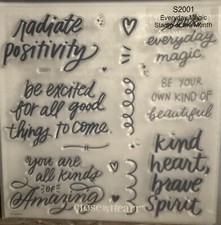 radiate
positivity
be excited
for all good
things to come.
you are
all kinds
OF
Amazing
S2001
Everyday Magic
Stamp of the Month
everyday
magic
BE YOUR
OWN KIND OF
beautiful
kind
heart,
brave
spirit
close to my heart